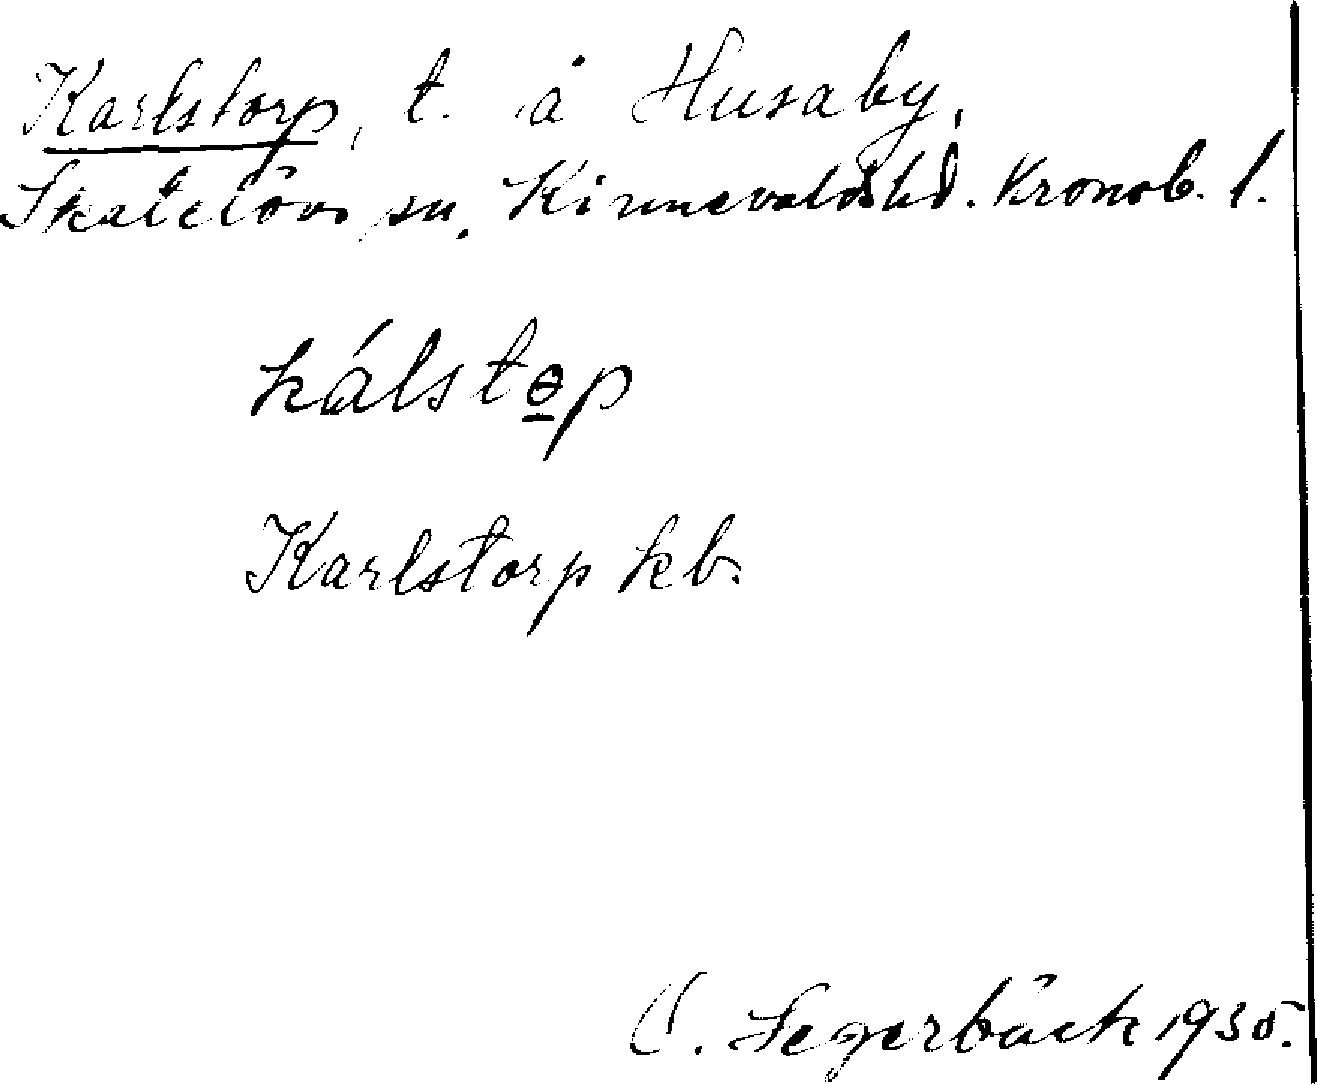 Karlstorp, t. å Husaby,
Skatelövs sn. Kinnevalds hd. Kronob. l.
kálstɵp
Karlstorp kb.
Segerbäck 1935.